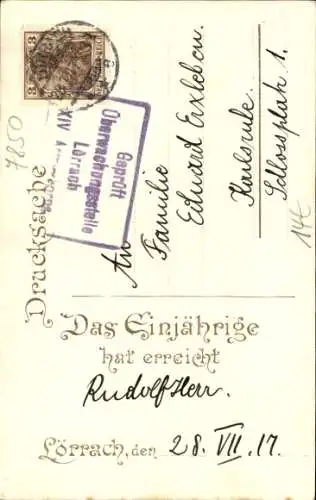 3 3
7850
Geprüft
Überwachungsstelle
Lörrach
XIV
Drucksache
An
Familie
Eduard Erxleben.
Karlsruhe.
Schlossplatz 1.
14€
Das Einjährige
hat erreicht
Rudolf Herr.
Lörrach, den 28. VII. 17.